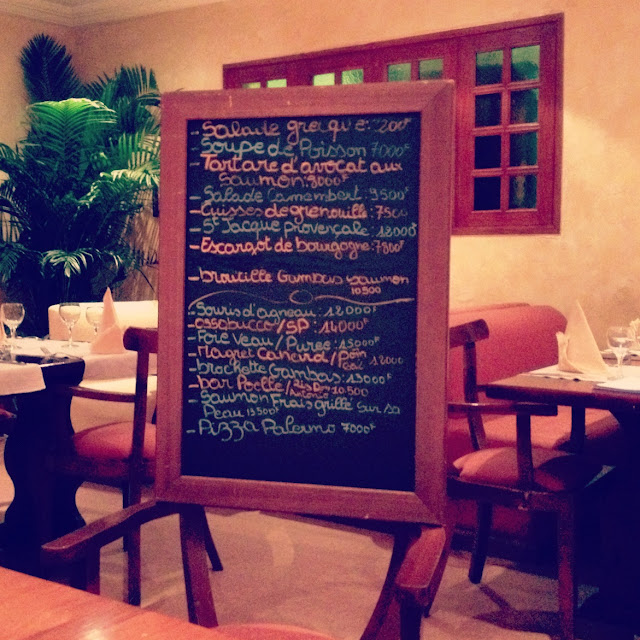 - Salade grecque: 200F
Soupe de Poisson 7000F
- Tartare d'avocat aux
Saumon: 9000F
- Salade Camembert: 9500F
- Cuisses de grenouille: 7500
- St Jacque provençale: 12000F
- Escargot de bourgogne: 7800F
- broutille Gambas saumon
10500
- Souris d'agneau: 12000F
- ossobucco/SP: 14000F
- Foie Veau/Purée: 15000F
- Magret Canard/Pom
12000
- brochette Gambas: 13000F
- bar Poelle/ 10500
- Saumon Frais grillé sur sa
Peau 13500F
- Pizza Palermo 7000F